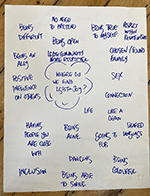 NO NEED
TO PRETEND
BEING
DIFFERENT
BEING TRUE
TO MYSELF
RESPECT
BEING OPEN
BEING AN
ALLY
CHOSEN / FOUND
FAMILY
POSITIVE
INFLUENCE
ON OTHERS
WHERE DO
WE FIND
LGBTQ+ JOY?
SEX
CONNECTION
LIFE
LIKE A
HAVING
PEOPLE YOU
ARE GOOD
WITH
BEING
ALIVE
GOING TO
PUB
SHARED
LANGUAGES
DANCING
BEING
COLOURFUL
INCLUSION
BEING ABLE
TO SMILE